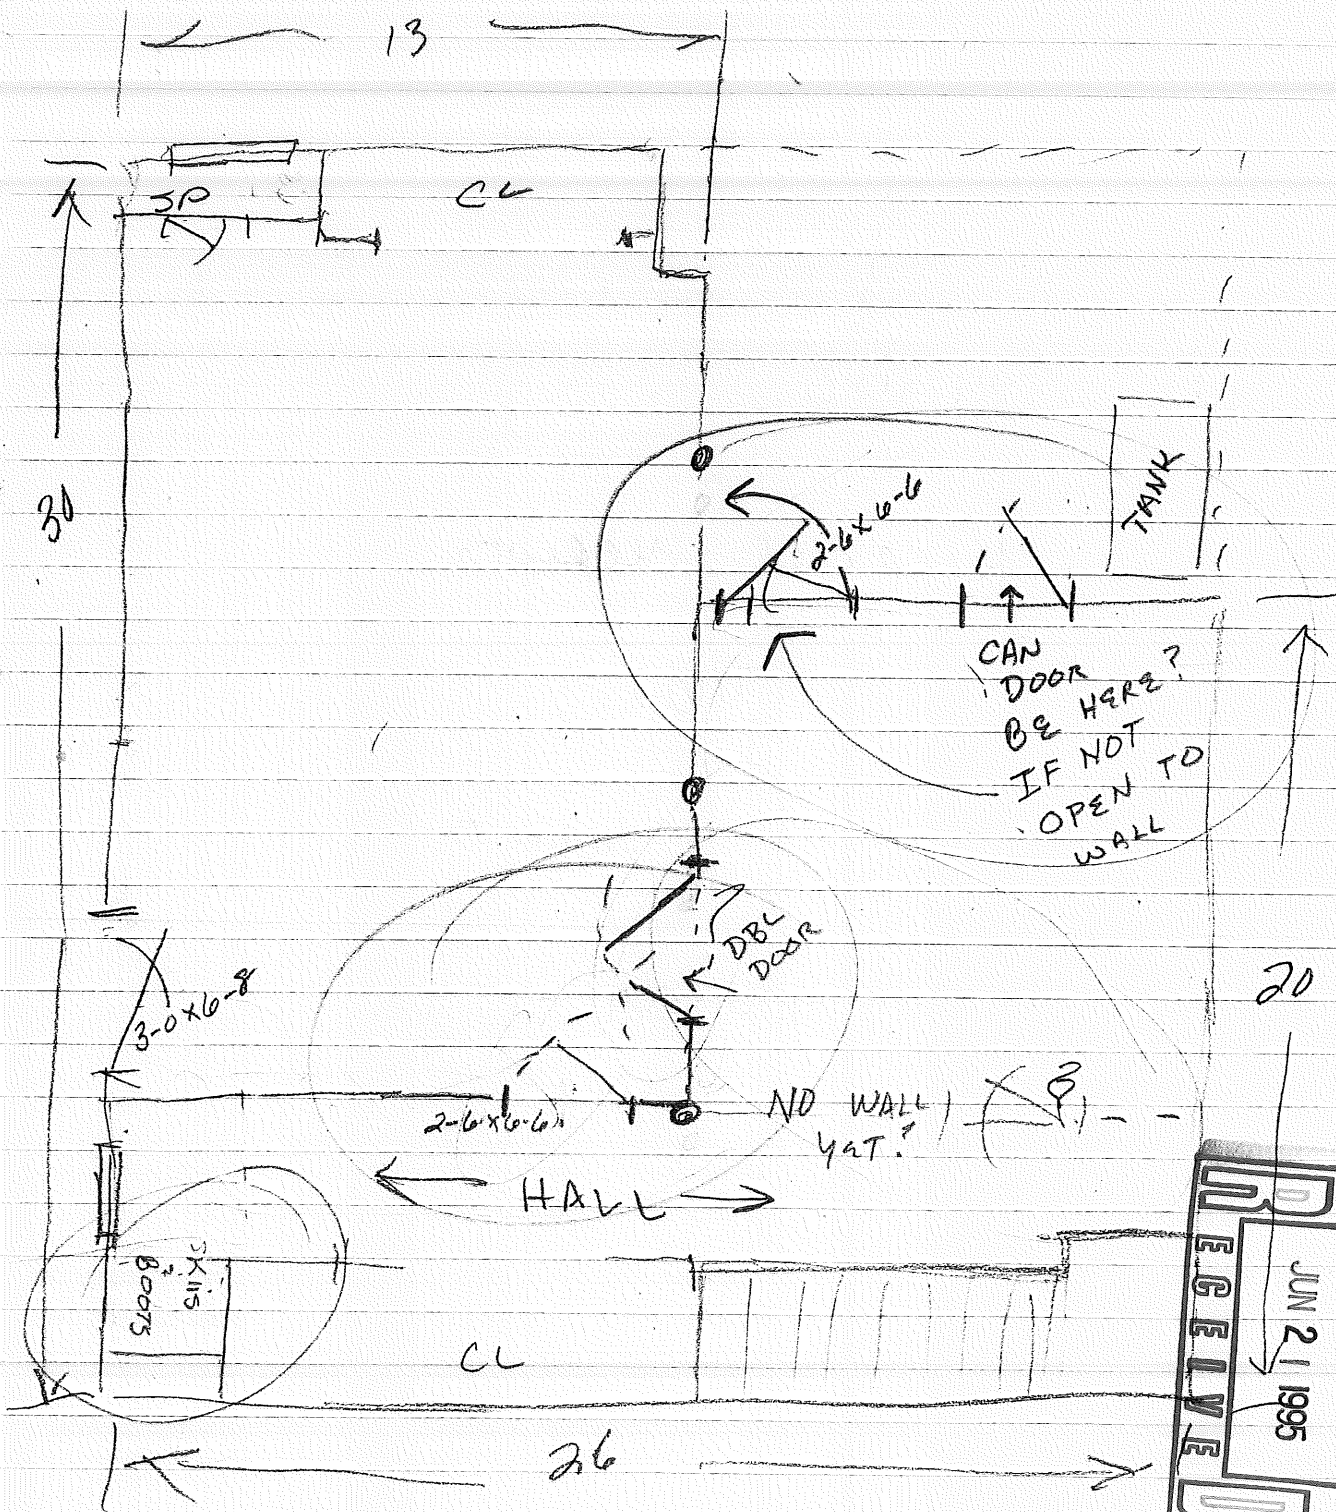 13
SP
CL
30
TANK
2-6 x 6-6
CAN
DOOR
BE HERE?
IF NOT
OPEN TO
WALL
DBL
DOOR
3-0 x 6-8
20
2-6 x 6-6
NO WALL
YET?
?
HALL
SKIIS
BOOTS
CL
26
RECEIVED
JUN 21 1995